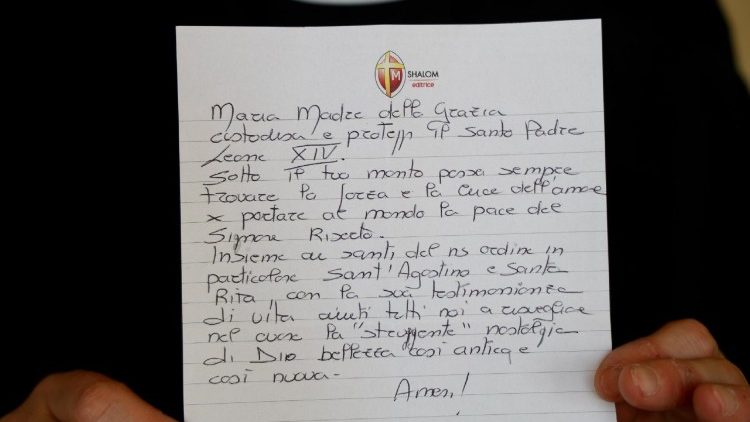 M SHALOM
editrice
Maria Madre della Grazia
custodisci e proteggi il Santo Padre
Leone XIV.
Sotto il tuo manto possa sempre
trovare la forza e la luce dell'amore
x portare al mondo la pace del
Signore Risorto.
Insieme ai santi del ns ordine in
particolare Sant'Agostino e Santa
Rita, con la sua testimonianza
di vita aiuti tutti noi a risvegliare
nel cuore la "struggente" nostalgia
di Dio bellezza così antica e
così nuova-
Amen!